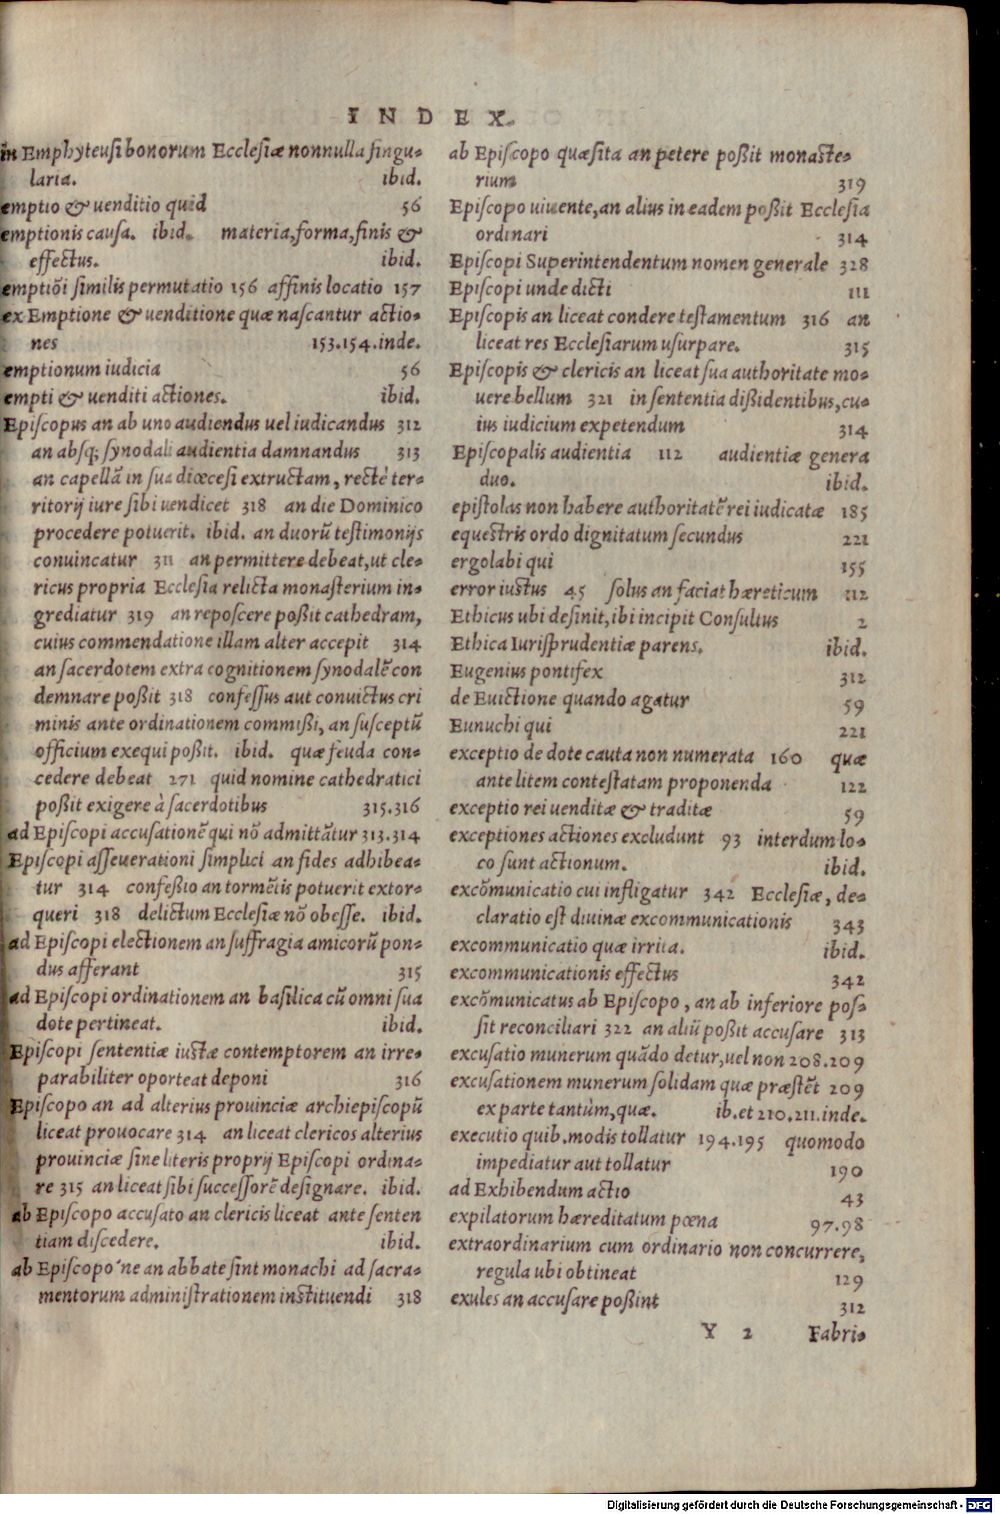 INDEX.
in Emphyteusi bonorum Ecclesiæ nonnulla singu-
laria. ibid.
emptio & uenditio quid 56
emptionis causa. ibid. materia, forma, finis &
effectus. ibid.
emptiõi similis permutatio 156 affinis locatio 157
ex Emptione & uenditione quæ nascantur actio-
nes 153.154.inde.
emptionum iudicia 56
empti & uenditi actiones. ibid.
Episcopus an ab uno audiendus uel iudicandus 312
an absq; synodali audientia damnandus 313
an capellã in sua diœcesi extructam, rectè ter-
ritorij iure sibi uendicet 318 an die Dominico
procedere potuerit. ibid. an duorũ testimonijs
conuincatur 311 an permittere debeat, ut cle-
ricus propria Ecclesia relicta monasterium in-
grediatur 319 an reposcere poßit cathedram,
cuius commendatione illam alter accepit 314
an sacerdotem extra cognitionem synodalẽ con
demnare poßit 318 confessus aut conuictus cri
minis ante ordinationem commißi, an susceptũ
officium exequi poßit. ibid. quæ feuda con-
cedere debeat 271 quid nomine cathedratici
poßit exigere à sacerdotibus 315.316
ad Episcopi accusationẽ qui nõ admittãtur 313.314
Episcopi asseuerationi simplici an fides adhibea-
tur 314 confeßio an tormẽtis potuerit extor-
queri 318 delictum Ecclesiæ nõ obesse. ibid.
ad Episcopi electionem an suffragia amicorũ pon-
dus afferant 315
ad Episcopi ordinationem an basilica cũ omni sua
dote pertineat. ibid.
Episcopi sententiæ iustæ contemptorem an irre-
parabiliter oporteat deponi 316
Episcopo an ad alterius prouinciæ archiepiscopũ
liceat prouocare 314 an liceat clericos alterius
prouinciæ sine literis proprij Episcopi ordina-
re 315 an liceat sibi successorẽ designare. ibid.
ab Episcopo accusato an clericis liceat ante senten
tiam discedere. ibid.
ab Episcopo'ne an abbate sint monachi ad sacra-
mentorum administrationem instituendi 318
ab Episcopo quæsita an petere poßit monaste-
rium 319
Episcopo uiuente, an alius in eadem poßit Ecclesia
ordinari 314
Episcopi Superintendentum nomen generale 328
Episcopi unde dicti 111
Episcopis an liceat condere testamentum 316 an
liceat res Ecclesiarum usurpare. 315
Episcopis & clericis an liceat sua authoritate mo-
uere bellum 321 in sententia dißidentibus, cu-
ius iudicium expetendum 314
Episcopalis audientia 112 audientiæ genera
duo. ibid.
epistolas non habere authoritatẽ rei iudicatæ 185
equestris ordo dignitatum secundus 221
ergolabi qui 155
error iustus 45 solus an faciat hæreticum 112
Ethicus ubi desinit, ibi incipit Consultus 2
Ethica Iurisprudentiæ parens. ibid.
Eugenius pontifex 312
de Euictione quando agatur 59
Eunuchi qui 221
exceptio de dote cauta non numerata 160 quæ
ante litem contestatam proponenda 122
exceptio rei uenditæ & traditæ 59
exceptiones actiones excludunt 93 interdum lo-
co sunt actionum. ibid.
excõmunicatio cui infligatur 342 Ecclesiæ, de-
claratio est diuinæ excommunicationis 343
excommunicatio quæ irrita. ibid.
excommunicationis effectus 342
excõmunicatus ab Episcopo, an ab inferiore pos-
sit reconciliari 322 an aliũ poßit accusare 313
excusatio munerum quãdo detur, uel non 208.209
excusationem munerum solidam quæ præstẽt 209
ex parte tantùm, quæ. ib. et 210.211.inde.
executio quib. modis tollatur 194.195 quomodo
impediatur aut tollatur 190
ad Exhibendum actio 43
expilatorum hæreditatum pœna 97.98
extraordinarium cum ordinario non concurrere,
regula ubi obtineat 129
exules an accusare poßint 312
Y 2 Fabri-
Digitalisierung gefördert durch die Deutsche Forschungsgemeinschaft - DFG